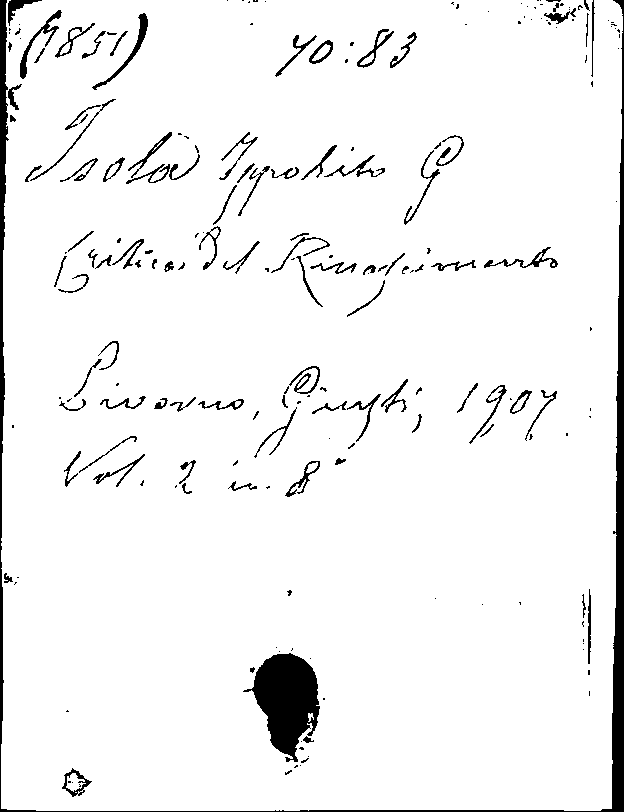 (7851) 70:83
Isola Ippolito G
Critica del Rinascimento
Livorno, Giusti, 1907.
Vol. 2 in 8°